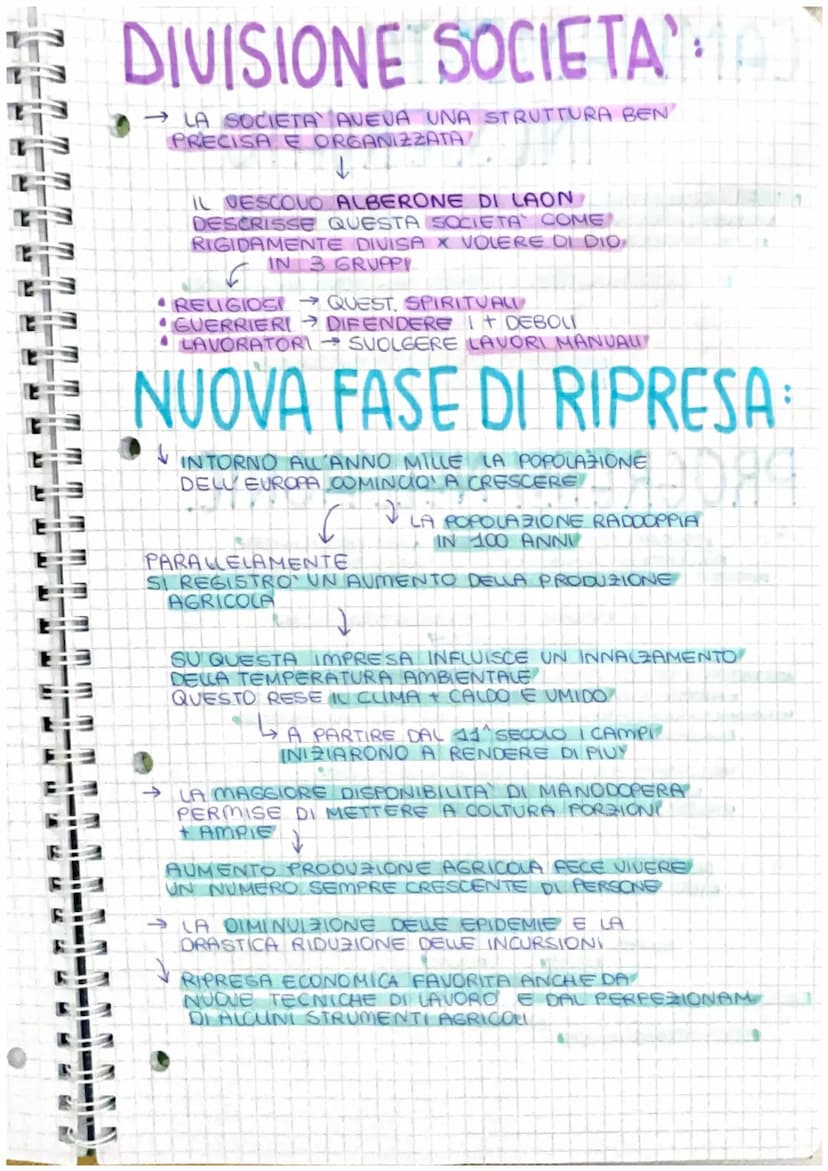 DIVISIONE SOCIETA':
→ LA SOCIETA' AVEVA UNA STRUTTURA BEN
PRECISA E ORGANIZZATA
↓
IL VESCOVO ALBERONE DI LAON
DESCRISSE QUESTA SOCIETA' COME
RIGIDAMENTE DIVISA x VOLERE DI DIO
IN 3 GRUPPI
• RELIGIOSI → QUEST. SPIRITUALI
• GUERRIERI → DIFENDERE I + DEBOLI
• LAVORATORI → SVOLGERE LAVORI MANUALI
NUOVA FASE DI RIPRESA:
↓ INTORNO ALL'ANNO MILLE LA POPOLAZIONE
DELL'EUROPA COMINCIO' A CRESCERE
↓ LA POPOLAZIONE RADDOPPIA
IN 100 ANNI
PARALLELAMENTE
SI REGISTRO' UN AUMENTO DELLA PRODUZIONE
AGRICOLA
↓
SU QUESTA IMPRESA INFLUISCE UN INNALZAMENTO
DELLA TEMPERATURA AMBIENTALE
QUESTO RESE IL CLIMA + CALDO E UMIDO
↳ A PARTIRE DAL 11^ SECOLO I CAMPI
INIZIARONO A RENDERE DI PIU'
→ LA MAGGIORE DISPONIBILITA' DI MANODOPERA
PERMISE DI METTERE A COLTURA PORZIONI
+ AMPIE
↓
AUMENTO PRODUZIONE AGRICOLA FECE VIVERE
UN NUMERO SEMPRE CRESCENTE DI PERSONE
→ LA DIMINUIZIONE DELLE EPIDEMIE E LA
DRASTICA RIDUZIONE DELLE INCURSIONI
↓ RIPRESA ECONOMICA FAVORITA ANCHE DA
NUOVE TECNICHE DI LAVORO E DAL PERFEZIONAM
DI ALCUNI STRUMENTI AGRICOLI